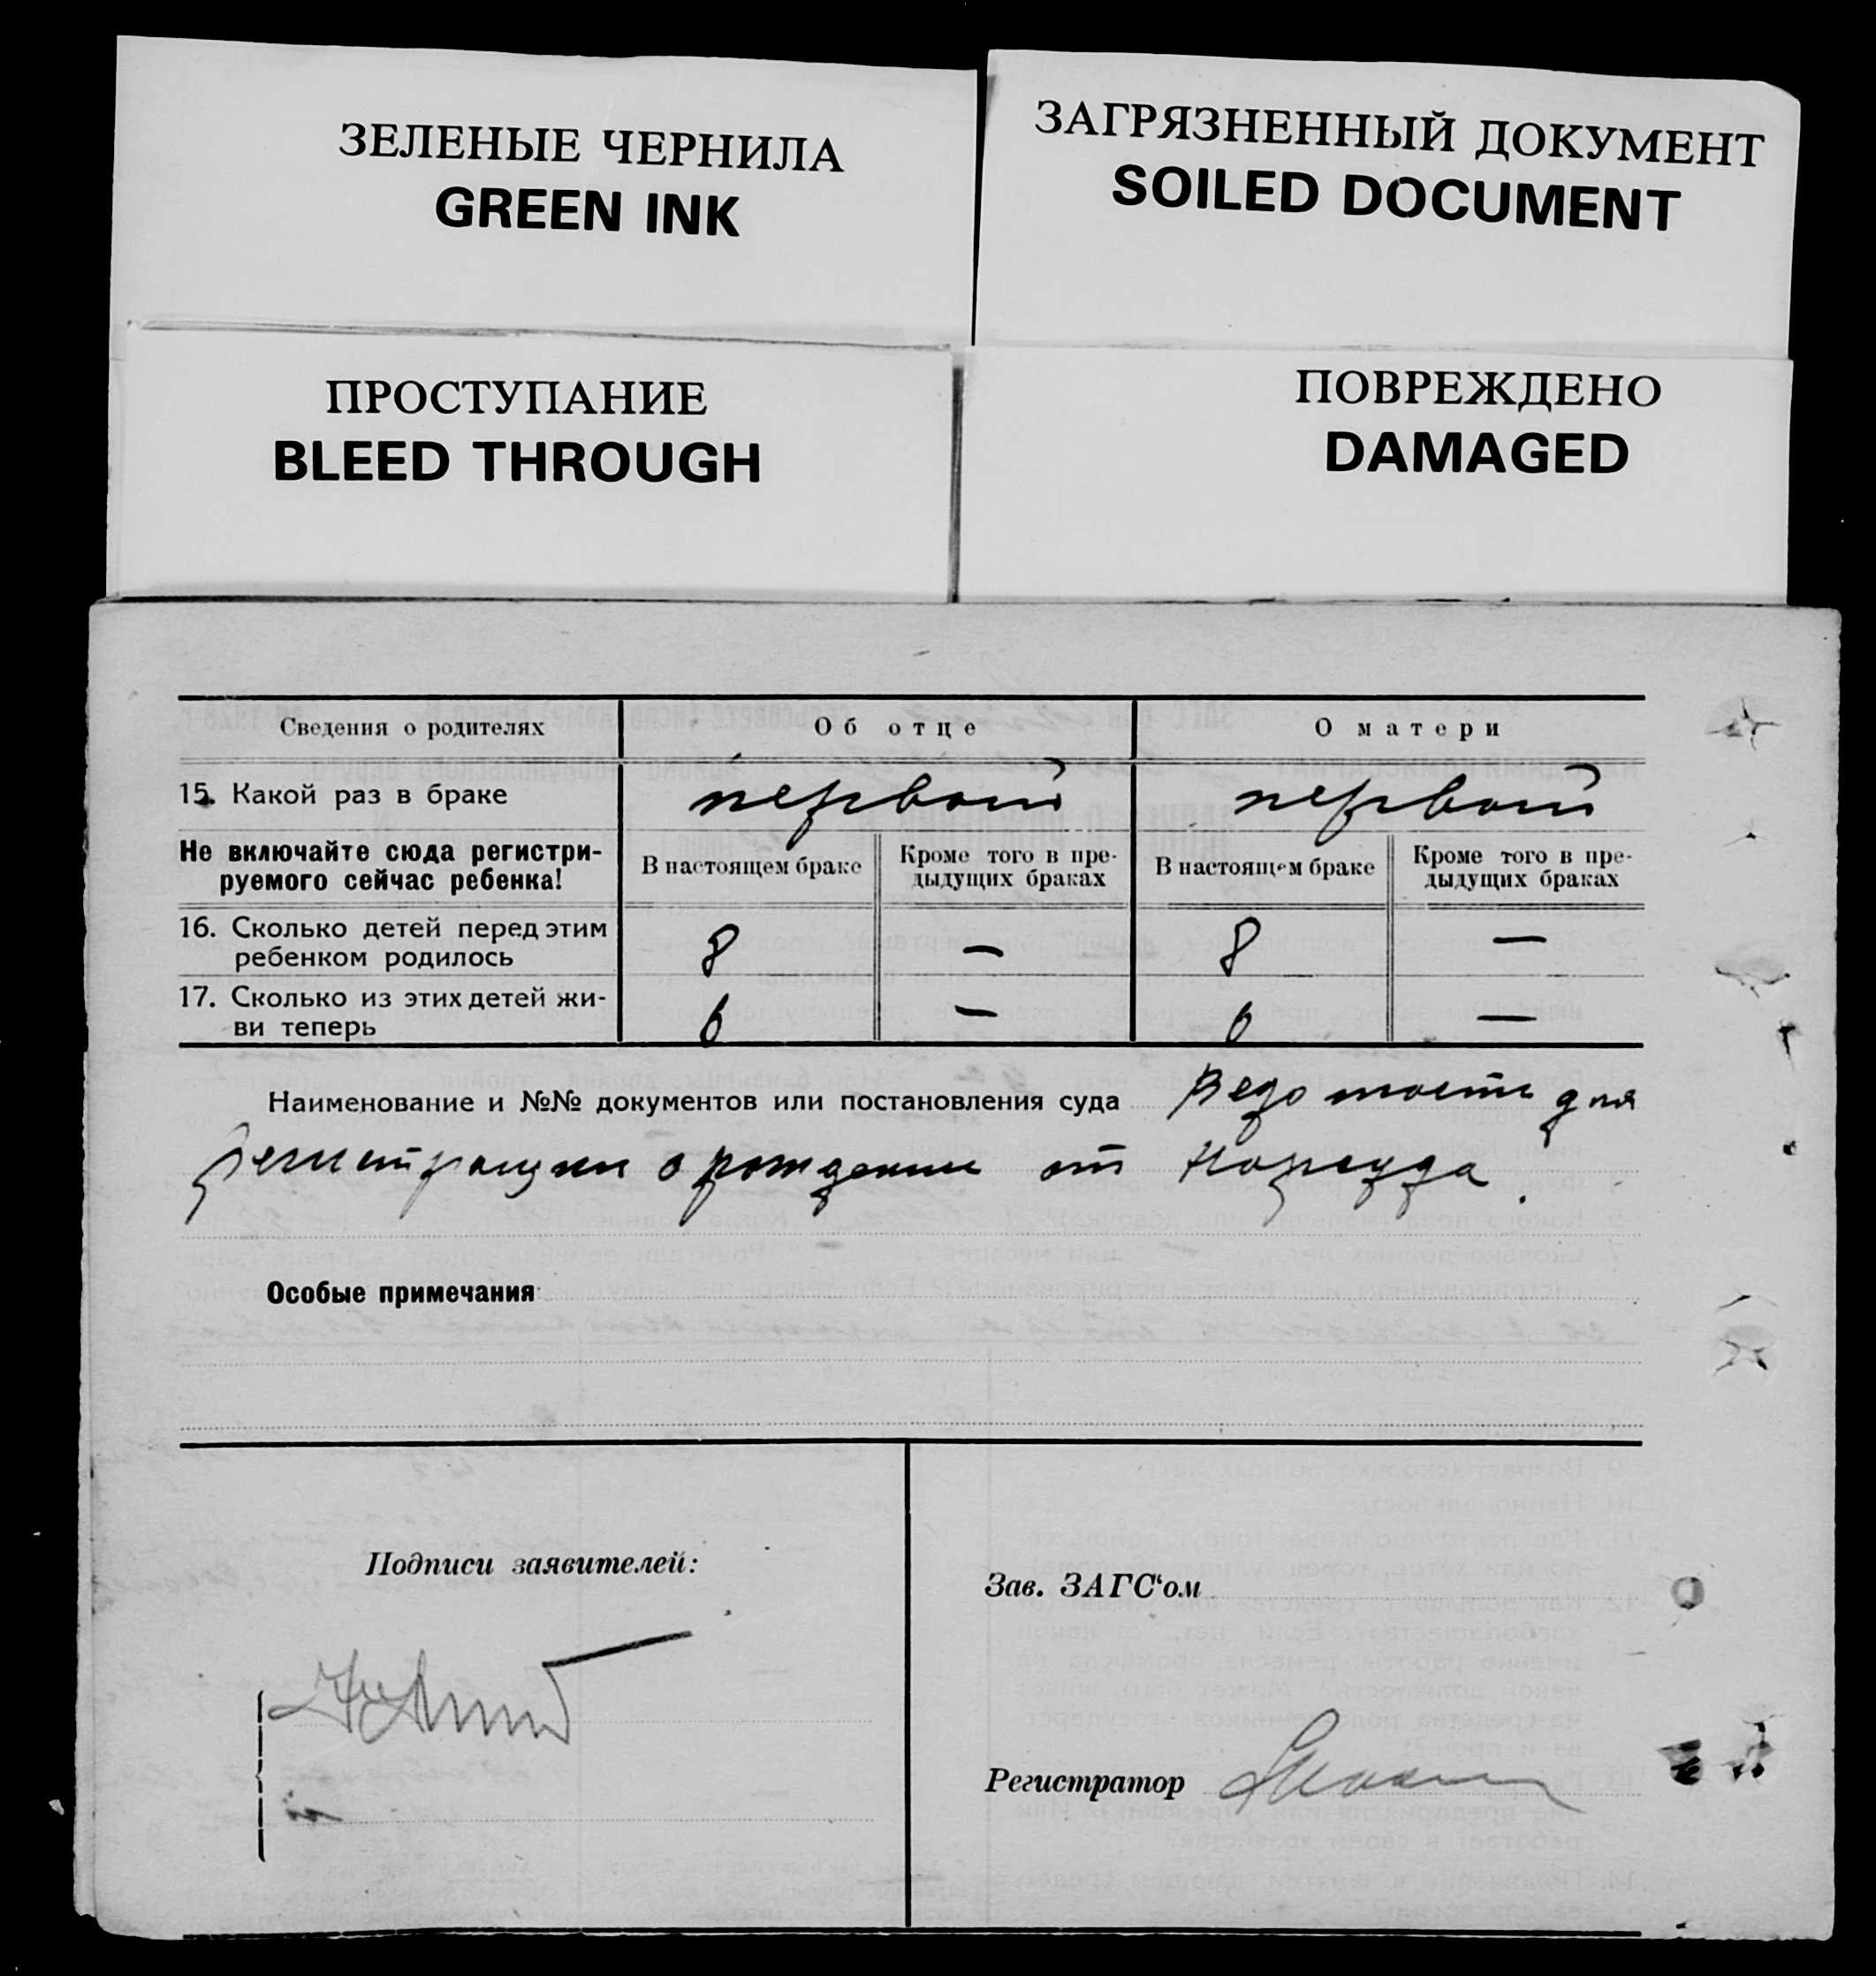 ЗЕЛЕНЫЕ ЧЕРНИЛА
GREEN INK
ЗАГРЯЗНЕННЫЙ ДОКУМЕНТ
SOILED DOCUMENT
ПРОСТУПАНИЕ
BLEED THROUGH
ПОВРЕЖДЕНО
DAMAGED
Сведения о родителях Об отце О матери
15. Какой раз в браке первый первый
Не включайте сюда регистри-
руемого сейчас ребенка!
В настоящем браке
Кроме того в пре-
дыдущих браках
В настоящем браке
Кроме того в пре-
дыдущих браках
16. Сколько детей перед этим
ребенком родилось 8 — 8 —
17. Сколько из этих детей жи-
ви теперь 6 — 6 —
Наименование и №№ документов или постановления суда Ведомость для
регистрации о рождении от
Особые примечания
Подписи заявителей:
Зав. ЗАГС‘ом
Регистратор